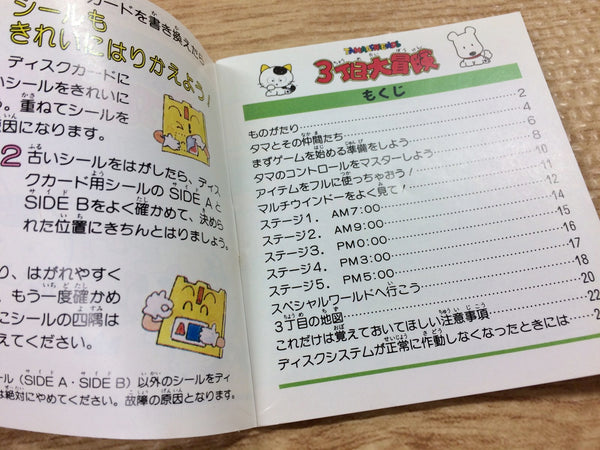 カードを書き換えたら
シールも
きれいにはりかえよう!
ディスクカードに
いシールをきれいに
。重ねてシールを
原因になります。
2 古いシールをはがしたら、ディス
クカード用シールの SIDE Aと
SIDE Bをよく確かめて、決めら
れた位置にきちんとはりましょう。
り、はがれやすく
、もう一度確かめ
にシールの四隅は
えてください。
ール (SIDE A・SIDE B) 以外のシールをディ
は絶対にやめてください。故障の原因となります。
3丁目大冒険
もくじ
ものがたり 2
タマとその仲間たち 4
まずゲームを始める準備をしよう 6
タマのコントロールをマスターしよう 8
アイテムをフルに使っちゃおう! 10
マルチウインドーをよく見て! 11
ステージ1. AM7:00 12
ステージ2. AM9:00 14
ステージ3. PM0:00 15
ステージ4. PM3:00 16
ステージ5. PM5:00 17
スペシャルワールドへ行こう 18
3丁目の地図 20
これだけは覚えておいてほしい注意事項 22
ディスクシステムが正常に作動しなくなったときには 2